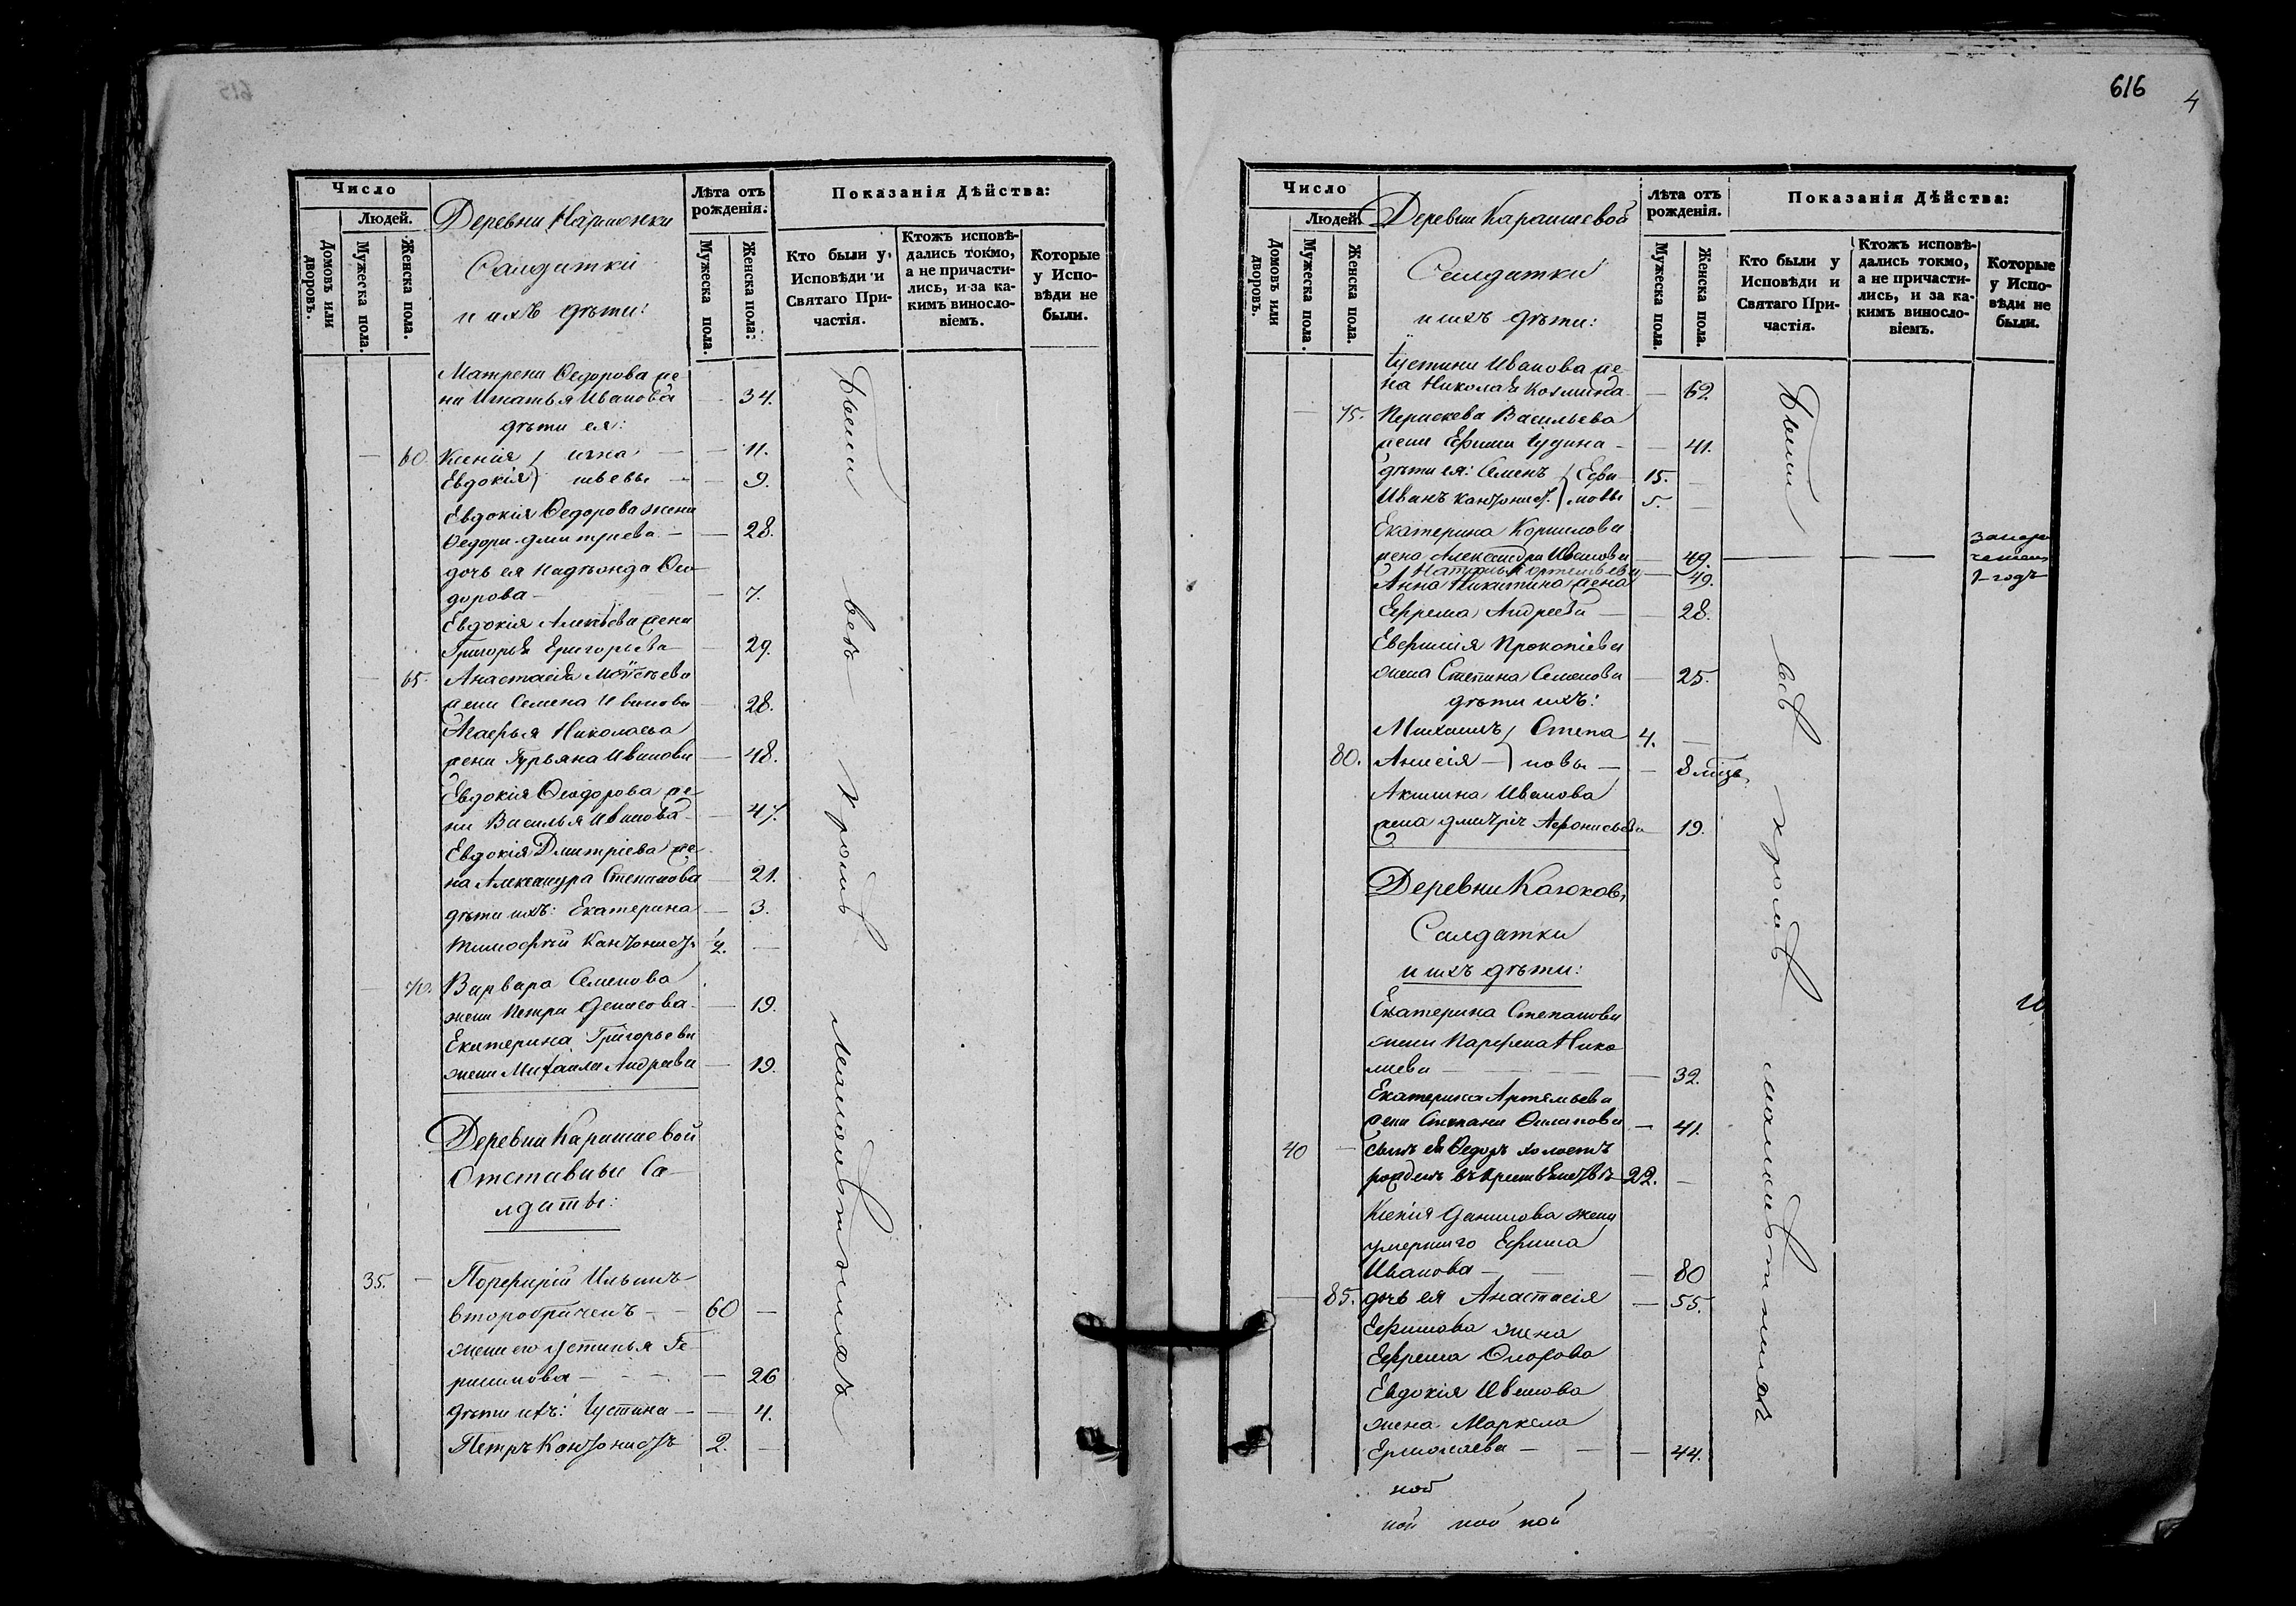 Число
Людей.
Домовъ или дворовъ.
Мужеска пола.
Женска пола.
Лѣта отъ рожденія.
Мужеска пола.
Женска пола.
Показанія Дѣйства:
Кто были у Исповѣди и Святаго Причастія.
Ктожъ исповѣдались токмо, а не причастились, и за какимъ винословіемъ.
Которые у Исповѣди не были.
Деревни
Салдатки
и ихъ дѣти:
Матрена Ѳедорова же-
на Игнатья Иванова — 34.
дѣти ея:
— 60. Ксенія } Игна — — 11.
Евдокія } тьевы — — 9.
Евдокія Ѳедорова жена
Ѳедора Дмитріева — — 28.
дочь ея Надѣжда Ѳео
дорова — — 7.
Евдокія Алексѣева жена
Григорья Григорьева — 29.
— 65. Анастасія Моисѣева
жена Семена Иванова — 28.
Агафья Николаева
жена Гурьяна Иванова — 48.
Евдокія Ѳеодорова же-
на Василья Иванова — 47.
Евдокія Дмитріева же-
на Александра Степанова — 21.
дѣти ихъ: Екатерина — 3.
Тимофѣй Кантонистъ 2. —
— 70. Варвара Семенова
жена Петра Денисова — 19.
Екатерина Григорьева
жена Михаила Андреева — 19.
Деревни Каришевой
Отставные Са-
лдаты:
35. — Порфирій Ильинъ
второбрачень — — 60 —
жена его Устинья Ге-
расимова — — — 26
дѣти ихъ: Іустина — — 4.
Петръ Кантонистъ 2. —
Были всѣ кромѣ малолѣтнихъ
616
4
Число
Людей.
Домовъ или дворовъ.
Мужеска пола.
Женска пола.
Лѣта отъ рожденія.
Мужеска пола.
Женска пола.
Показанія Дѣйства:
Кто были у Исповѣди и Святаго Причастія.
Ктожъ исповѣдались токмо, а не причастились, и за какимъ винословіемъ.
Которые у Исповѣди не были.
Деревни Каришевой
Салдатки
и ихъ дѣти:
Іустина Иванова же-
на Николая Козмина — 62.
— 75. Параскева Васильева
жена Ефима Іудина — — 41.
дѣти ея: Семенъ } Ефи- 15. —
Иванъ кантонист. } мовы 5. —
Екатерина Корнилова
жена Александра Иванова — 49. — —
Наталья Артемьева — 49.
Анна Никитина жена
Ефрема Андреева — — 28.
Евфимія Прокопіева
жена Степана Семенова — 25.
дѣти ихъ:
Михаилъ } Степа 4. —
80. Анисія — } новы — — 8 мѣсц.
Акилина Иванова
жена Дмитрія Афонасьева — 19.
1 годъ
Деревни Каюковъ
Салдатки
и ихъ дѣти:
Екатерина Степанова
жена Парфена Нико
лаева — — — 32.
Екатерина Артемьева
жена Степана Филипова — 41.
40 — сынъ ея Ѳедоръ холостъ
рожденъ въ крестьянствѣ 22. —
Ксенія Данилова жена
умершаго Ефима
Иванова — — — 80
— 85. дочь ея Анастасія — 55.
Ефимова жена
Ефрема
Евдокія Иванова
жена Маркела
Ермолаева — — — 44.
Были всѣ кромѣ малолѣтнихъ
ной
ной ной ной